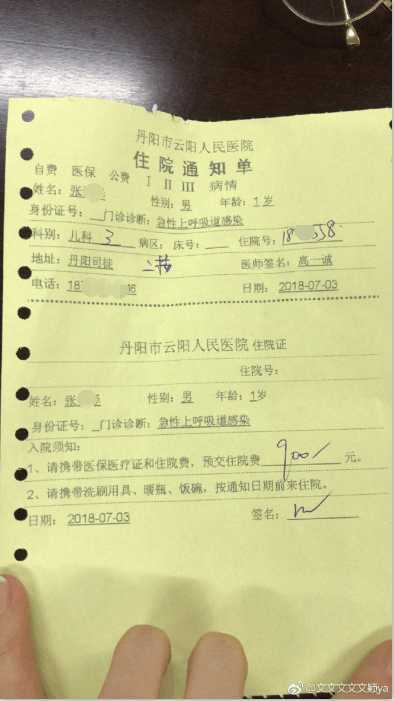 丹阳市云阳人民医院
住院通知单
自费 医保 公费 I II III 病情
姓名：张 性别：男 年龄：1岁
身份证号：__门诊诊断：急性上呼吸道感染
科别：儿科 3 病区： 床号：__ 住院号：18 558
地址：丹阳司徒 医师签名：高一诚
电话：18 46 日期：2018-07-03
丹阳市云阳人民医院 住院证
住院号：
姓名：张 性别：男 年龄：1岁
身份证号：_门诊诊断：急性上呼吸道感染
入院须知：
1、请携带医保医疗证和住院费，预交住院费 900 元。
2、请携带洗刷用具、暖瓶、饭碗，按通知日期前来住院。
日期：2018-07-03 签名：
@文文文文文颖ya